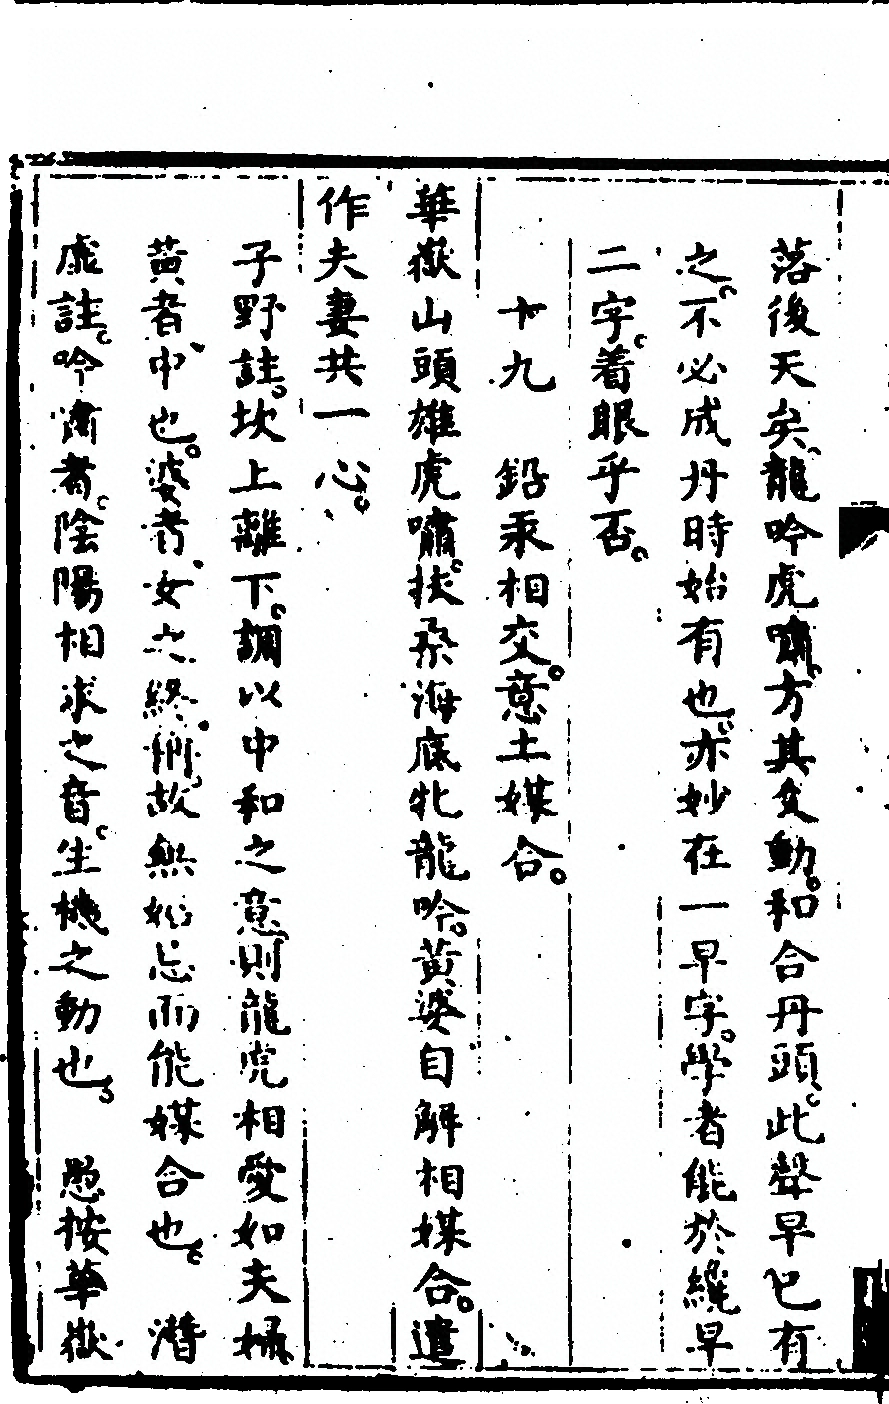 落後天矣龍吟虎嘯方其交動和合丹頭此聲早已有
之不必成丹時始有也亦妙在一早字學者能於纔早
二字着眼乎否
十九　鉛汞相交意土媒合
華嶽山頭雄虎嘯扶桑海底牝龍吟黃婆自解相媒合遣
作夫妻共一心
子野註坎上離下調以中和之意則龍虎相愛如夫婦
黃者中也婆者女之終能媒合也　潛
虛註吟嘯者陰陽相求之音生機之動也　愚按華嶽